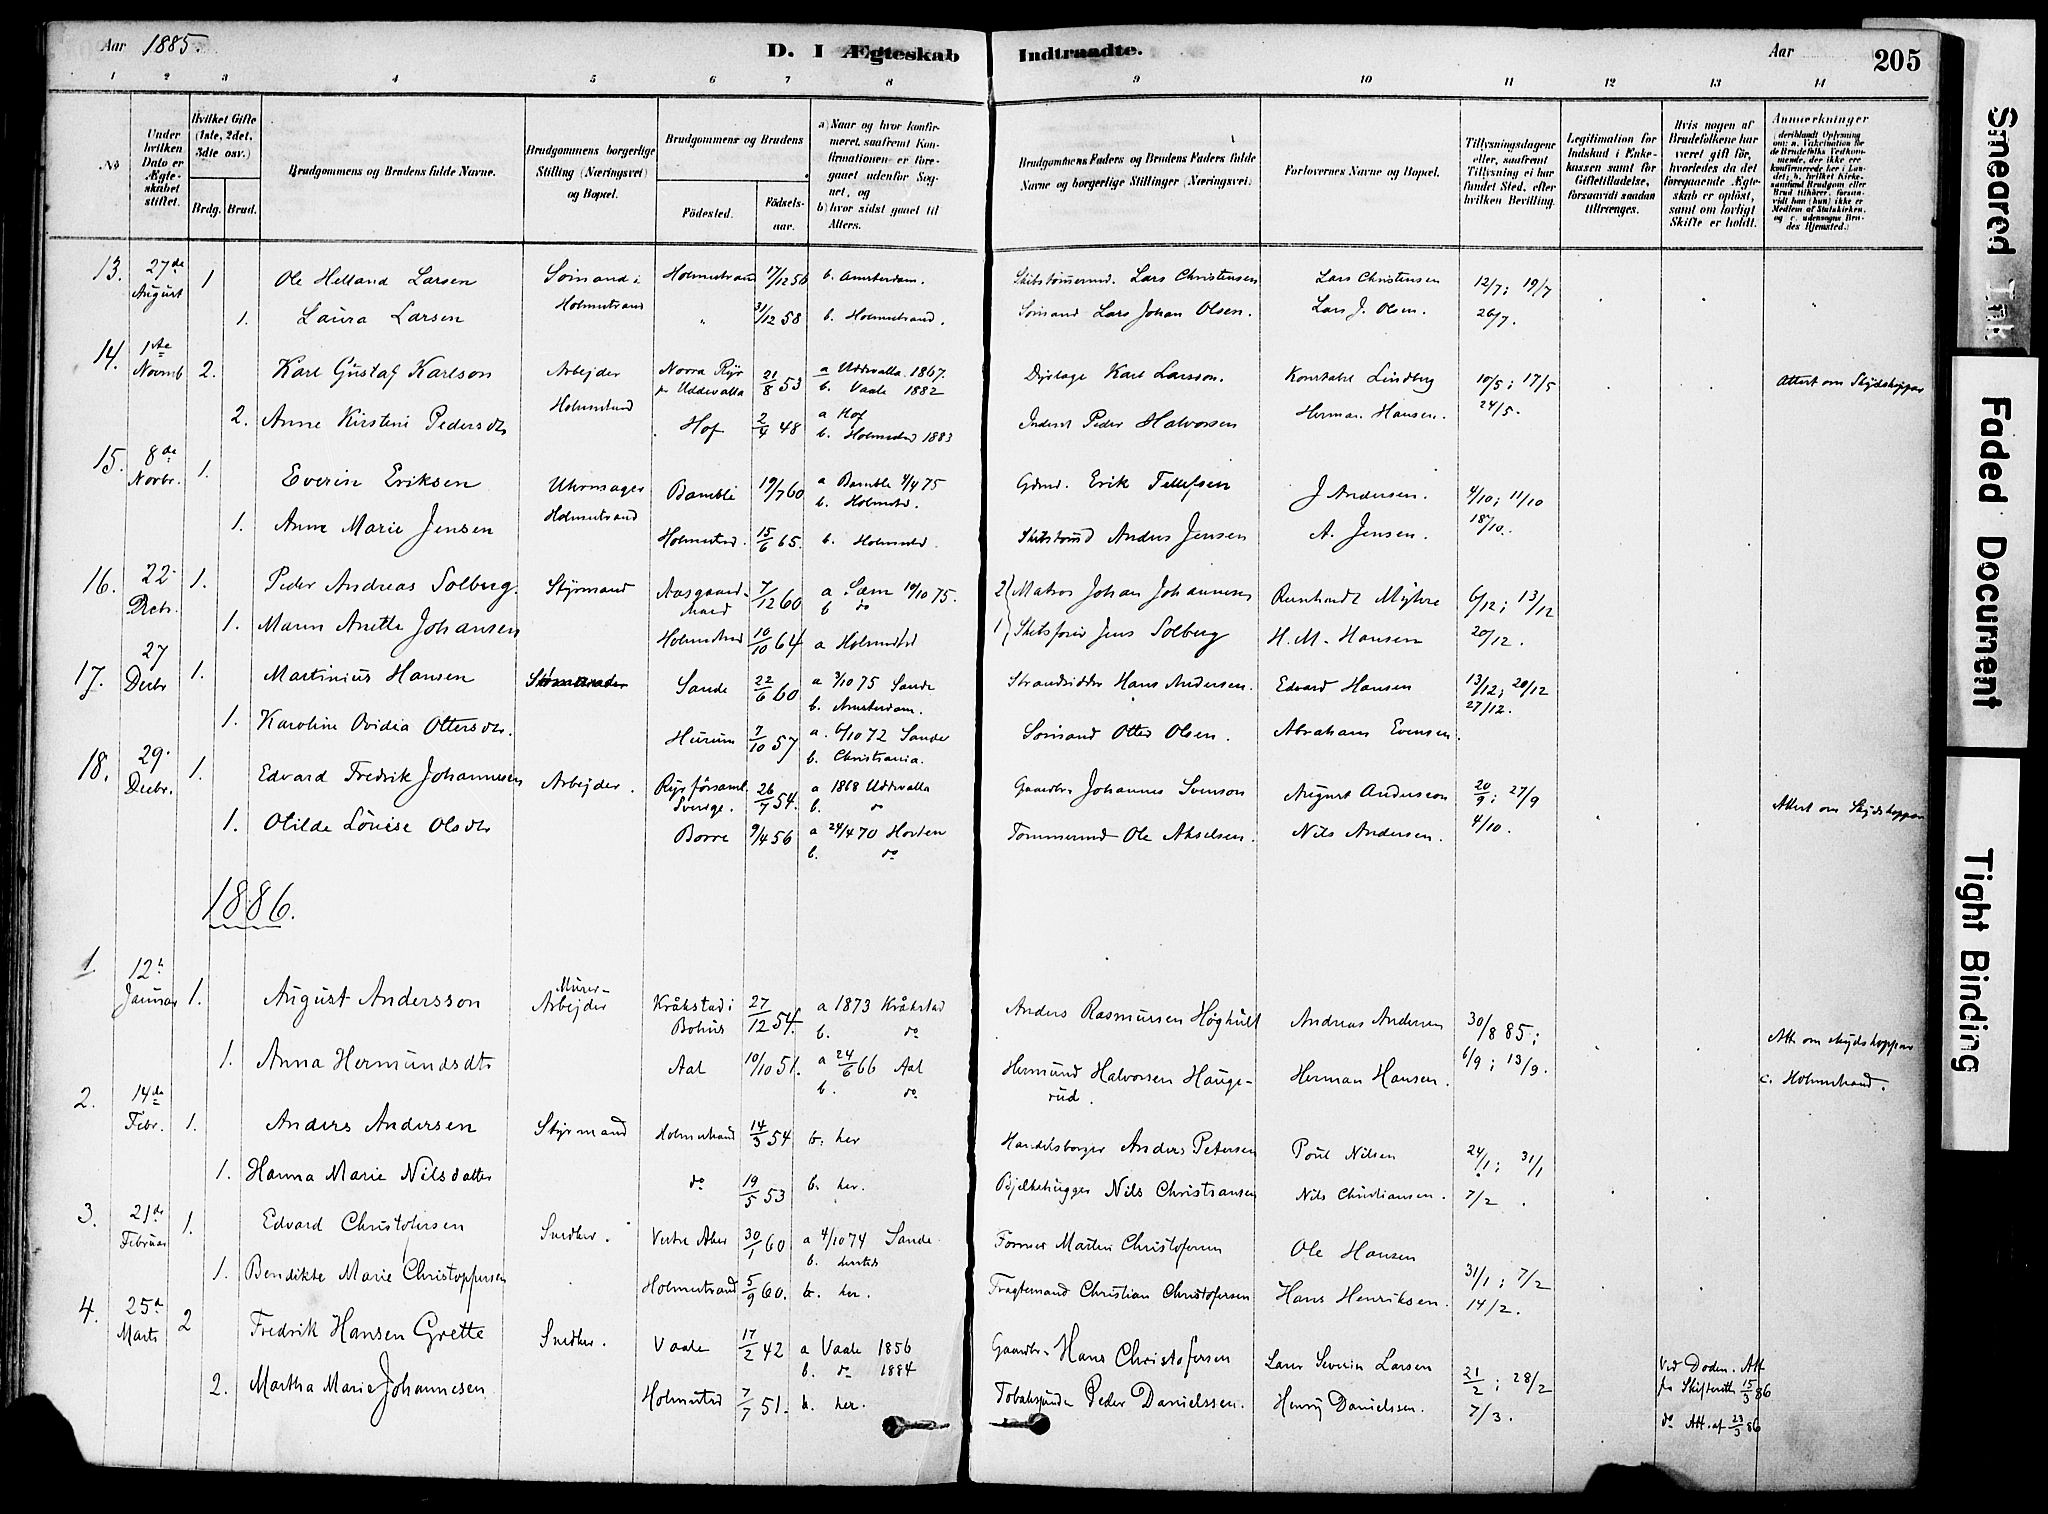 Aar 1885. D. I Ægteskab Indtraadte. Aar 205
1 2 3 4 5 6 7 8 9 10 11 12 13 14
No
Under hvilken Dato er Ægteskabet stiftet.
Hvilket Gifte (1ste, 2det, 3die osv.)
Brdg. Brud.
Brudgommens og Brudens fulde Navne.
Brudgommens borgerlige Stilling (Næringsvei) og Bopæl.
Brudgommens og Brudens
Födested. Födselsaar.
a) Naar og hvor konfirmeret, saafremt Konfirmationen er foregaaet udenfor Sognet, og
b) hvor sidst gaaet til Alters.
Brudgommens Faders og Brudens Faders fulde Navne og borgerlige Stillinger (Næringsvei)
Forlovernes Navne og Bopæl.
Tillysningsdagene eller, saafremt Tillysning ei har fundet Sted, efter hvilken Bevilling.
Legitimation for Indskud i Enkekassen samt for Giftetilladelse, forsaavidt saadan tiltrænges.
Hvis nogen af Brudefolkene har været gift för, hvorledes da det foregaaende Ægteskab er oplöst, samt om lovligt Skifte er holdt.
Anmerkninger (deriblandt Oplysning om: a. Vakcination for de Brudefolks Vedkommende, der ikke ere konfirmerede her i Landet; b. hvilket Kirkesamfund Brudgom eller Brud tilhörer, forsaavidt han (hun) ikke er Medlem af Statskirken, og c. udensogns Brudes Hjemsted.)
13. 27de August 1 Ole Helland Larsen Sömand i Holmestrand Holmestrand 17/12 56 b. Amsterdam. Skibstömermd. Lars Christensen Lars Christensen 12/7; 19/7
1. Laura Larsen " 31/12 58 b. Holmestrand. Sömand Lars Johan Olsen. Lars J. Olsen. 26/7.
14. 1ste Novmb 2. Karl Gustaf Karlson Arbejder Holmestrand Norra Ryr pr Uddevalla 21/8 53 a Uddevalla 1867. b. Vaale 1882 Karl Larsson. Konstabel Lindberg 10/5; 17/5 Attest om Skjdskopper
2. Anne Kirstine Pedersdtr Hof 2/4 48 a Hof b. Holmestrd 1883 Inderst Peder Halvorsen Herman Hansen. 24/5.
15. 8de Novbr. 1. Everin Eriksen Uhrmager Holmestrand Bamble 19/7 60 a Bamble 4/4 75 b. Holmestd. Gdmd. Erik Tellefsen J Andersen. 4/10; 11/10
1. Anne Marie Jensen Holmestrd. 15/6 65. b. Holmestrd. Skibstömd Anders Jensen A. Jensen. 18/10.
16. 22 Decbr. 1. Peder Andreas Solberg. Styrmand Aasgaardstrand 7/12 60 a Sem 10/10 75. b do 2) Matros Johan Johannesen Reinhardt Myhre 6/12; 13/12
1. Maren Anette Johansen Holmestrd 10/10 64 a Holmestrd 1) Skibsförer Jens Solberg H. M. Hansen 20/12.
17. 27 Decbr 1. Martinius Hansen Sande 22/6 60 a 3/10 75 Sande b. Amsterdam. Strandsidder Hans Andersen. Edvard Hansen 13/12; 20/12
1. Karoline Ovidia Ottersdtr. Hurum 7/10 57 a. 6/10 72 Sande b. Christiania. Sömand Otter Olsen. Abraham Evensen. 27/12.
18. 29 Decbr. 1. Edvard Fredrik Johannesen Arbejder. Ryrs församl. Sverge. 26/7 54. a 1868 Uddevalla b. do Gaardbr. Johannes Svenson August Anderson 20/9; 27/9 Attest om Skjdskopper
1. Otilde Löuise Olsdtr Borre 9/4 56 a 24/4 70 Horten b. do Tömmermd Ole Akselsen. Nils Andersen. 4/10.
1886.
1. 12te Januar 1. August Andersson Murer-Arbejder Kråkstad i Bohus 27/12 54. a 1873 Kråkstad b. do Anders Rasmussen Höghult Andreas Andersen 30/8 85; Att om skjdskopper
1. Anna Hermundsdtr Aal 10/10 51. a 24/6 66 Aal b. do Hermund Halvorsen Haugerud. Herman Hansen. 6/9; 13/9. c. Holmestrand.
2. 14de Febr. 1. Anders Andersen Styrmand Holmestrand 14/3 54 b. her Handelsborger Anders Petersen Poul Nilsen 24/1; 31/1
1. Hanna Marie Nilsdatter do 19/5 53 b. her. Bjelkehugger Nils Christiansen Nils Christiansen. 7/2.
3. 21de Februar 1. Edvard Christofersen Snedker. Vestre Aker 30/1 60 a 4/10 74 Sande b. Former Martin Christofersen Ole Hansen 31/1; 7/2
1. Bendikte Marie Christophersen Holmestrand 5/9 60. b. her. Fragtemand Christian Christofersen Hans Henriksen. 14/2.
4. 25de Marts 2 Fredrik Hansen Grette Snedker. Vaale 17/2 42 a Vaale 1856 b. do 1884 Gaardbr. Hans Christofersen Severin Larsen 21/2; 28/2 Ved Döden. Att fr Skifteretten 15/3 86
2. Martha Marie Johannesen Holmestrd 7/7 51. b. her. Peder Danielssen. Henry Danielssen. 7/3. do Att. af 23/3 86
Smeared Ink
Faded Document
Tight Binding